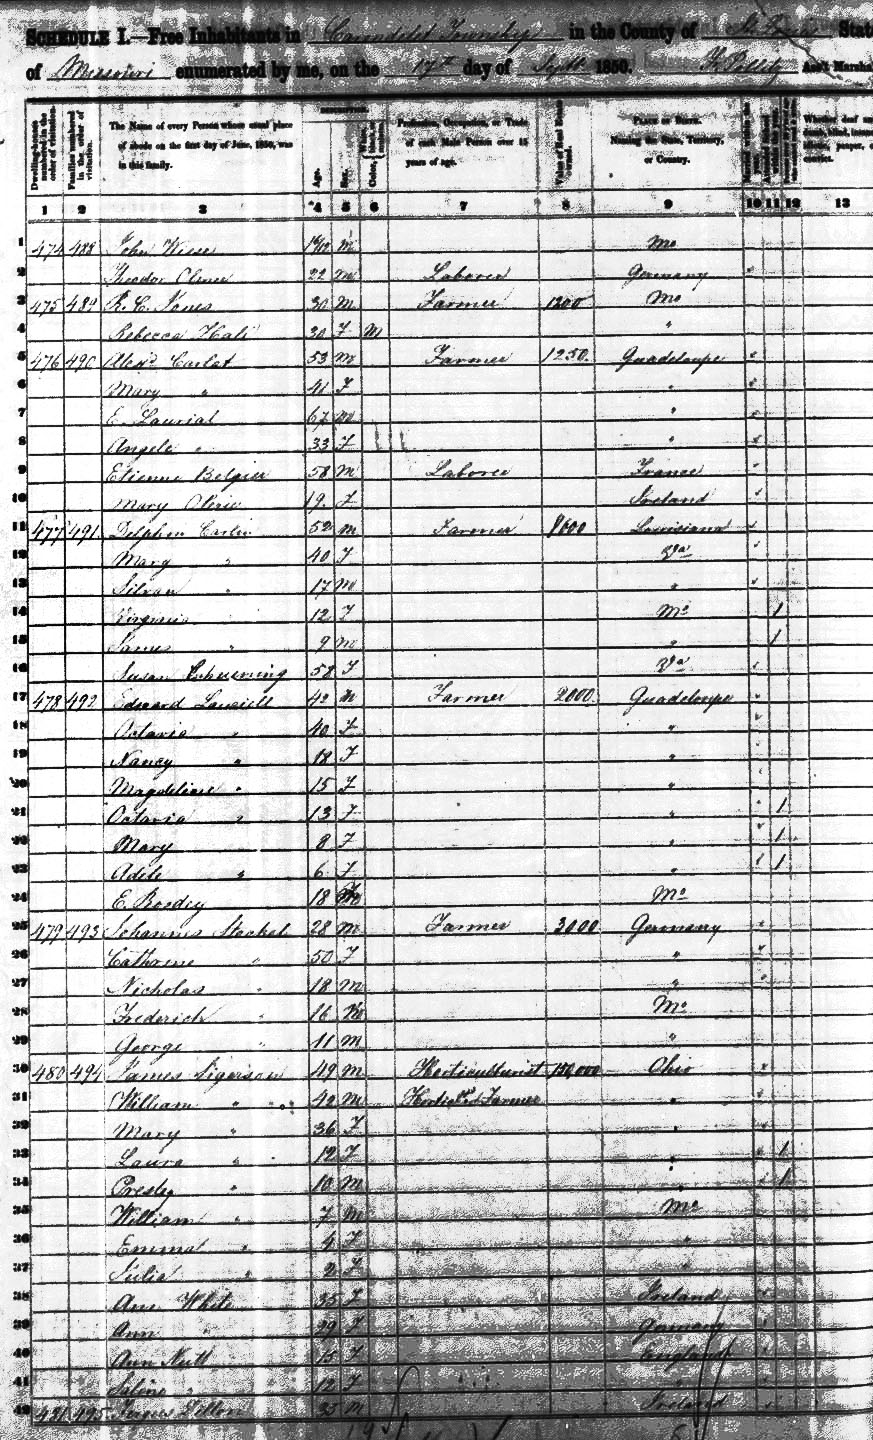 SCHEDULE I.—Free Inhabitants in Carondelet Township in the County of St. Louis State
of Missouri enumerated by me, on the 17th day of Sept 1850. Ass't Marshal
Dwelling-houses numbered in the order of visitation.
Families numbered in the order of visitation.
The Name of every Person whose usual place of abode on the first day of June, 1850, was in this family.
DESCRIPTION.
Age.
Sex.
Color,
Profession, Occupation, or Trade of each Male Person over 15 years of age.
Value of Real Estate owned.
Place of Birth. Naming the State, Territory, or Country.
Whether deaf and dumb, blind, insane, idiotic, pauper, or convict.
1 2 3 4 5 6 7 8 9 10 11 12 13
1 474 488 John Wiese 10/12 M Mo
2 Theodor 22 M Laborer Germany
3 475 489 R. C. 30 M Farmer 1200 Mo
4 Rebecca Hall 30 F M "
5 476 490 Alexr Carlat 53 M Farmer 1250. Guadeloupe
6 Mary " 41 F "
7 E. Laurial 67 M "
8 Angele " 33 F "
9 Etienne Belgier 58 M Laborer France
10 Mary 19. F Ireland
11 477 491 Delphin Carlin 52 M Farmer 8000 Louisiana
12 Mary " 40 F Va
13 Silvan " 17 M "
14 Virginia " 12 F Mo 1
15 James " 9 M " 1
16 Susan 58 F Va
17 478 492 Edward 42 M Farmer 2000. Guadeloupe
18 Octavia " 40 F "
19 Nancy " 18 F "
20 Magdeline " 15 F "
21 Octavia " 13 F " 1
22 Mary 8 F " 1
23 Adele " 6 F " 1
24 E. 18 M Mo
25 479 493 Johannes Stockel 28 M Farmer 3000 Germany
26 Cathrene " 50 F "
27 Nicholas " 18 M "
28 Frederich " 16 M Mo
29 George " 11 M "
30 480 494 James Sigerson 49 M Horticulturist 150,000 Ohio
31 William " 42 M Farmer "
32 Mary " 36 F "
33 Laura " 12 F " 1
34 Presley " 10 M " 1
35 William " 7 M Mo
36 Emma " 4 F "
37 Julia " 2 F "
38 Ann White 35 F Ireland
39 Ann 29 F Germany
40 Ann Nutt 15 F England
41 12 F "
42 481 495 Dillon 35 M Ireland